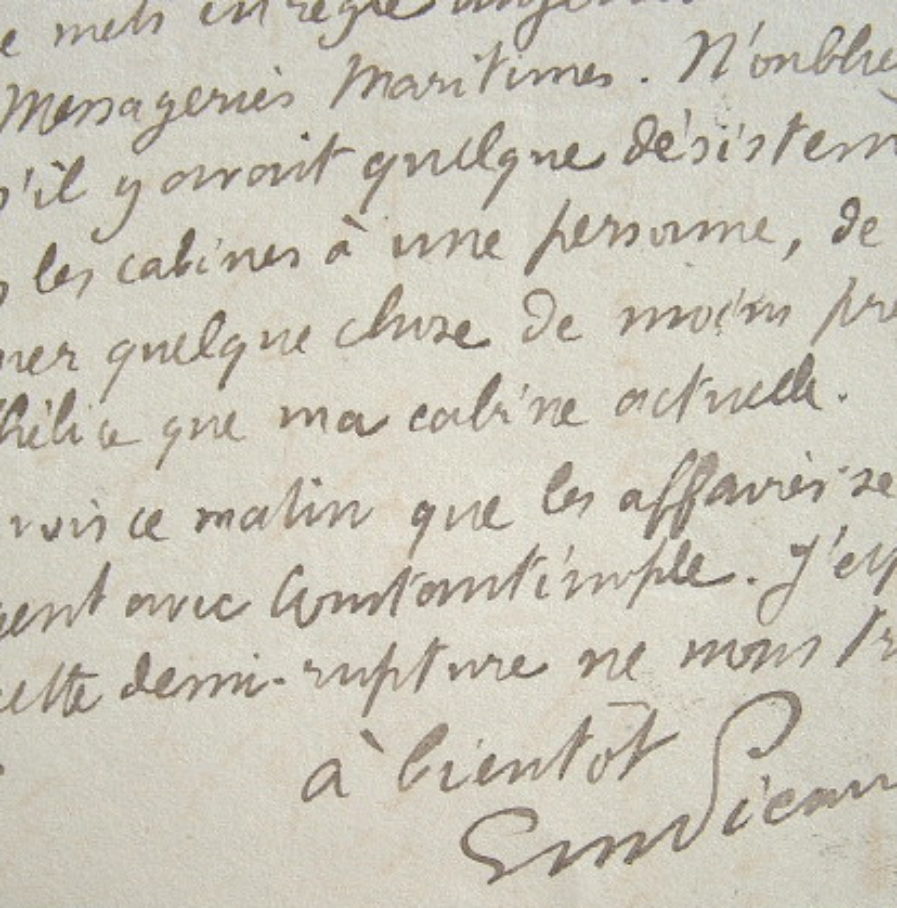 e mets en règle
Messageries Maritimes. N'oubliez
s'il y avait quelque désistem
les cabines à une personne, de
ner quelque chose de moins pr
hélice que ma cabine actuelle.
vois ce matin que les affaires se
ent avec Constantinople. J'esp
cette demi-rupture ne nous tr
à bientôt